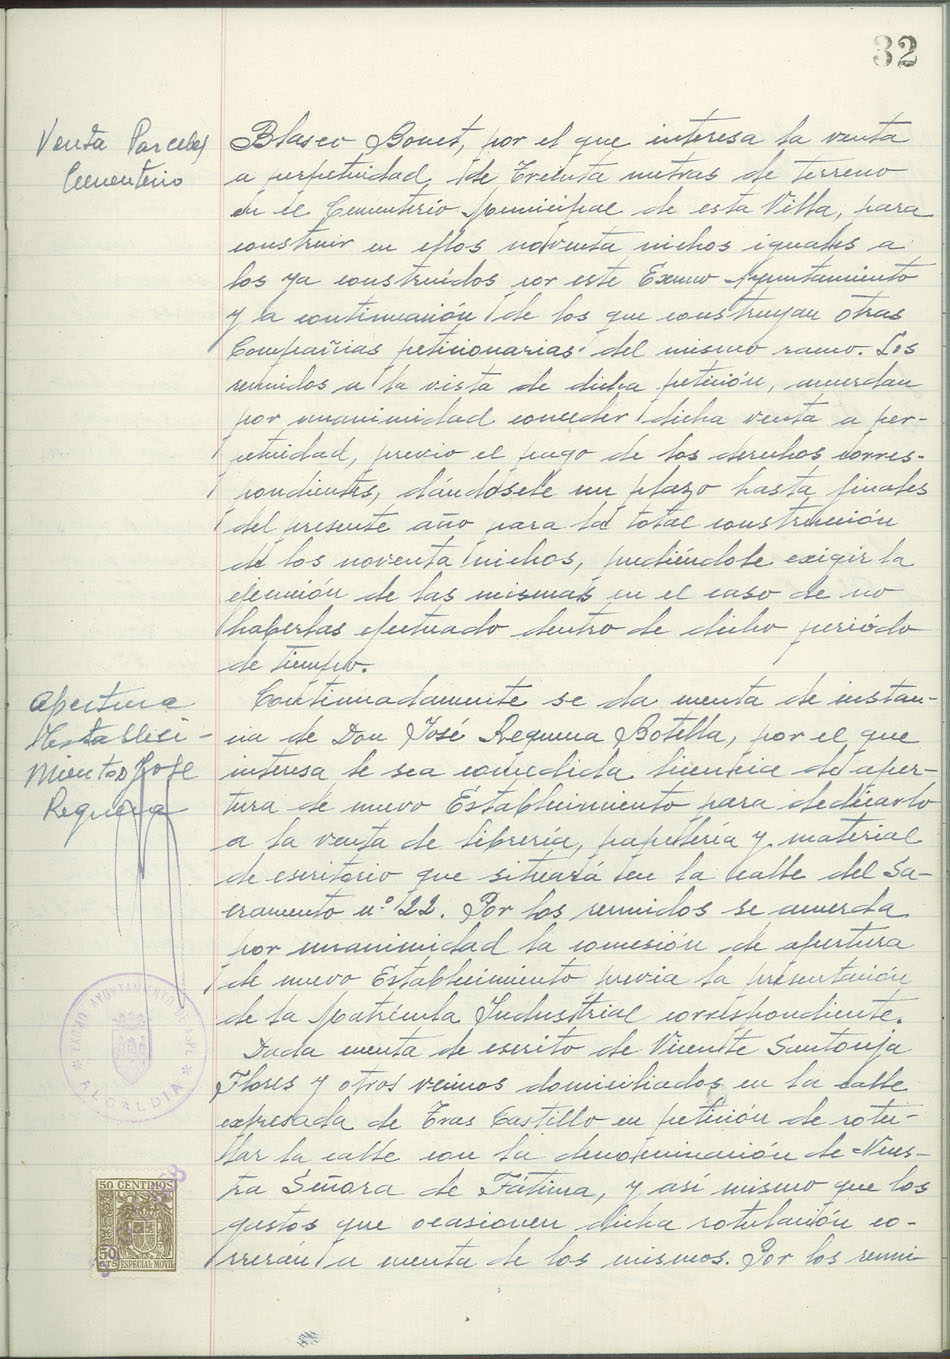 32
Venta Parcelas
Cementerio
Blasco Bonet, por el que interesa la venta
a perpetuidad, de Treinta metros de terreno
en el Cementerio Municipal de esta Villa, para
construir en ellos noventa nichos iguales a
los ya construidos por este Excmo Ayuntamiento
y a continuación de los que construyan otras
Compañias peticionarias del mismo ramo. Los
reunidos a la vista de dicha petición, acuerdan
por unanimidad conceder dicha venta a per-
petuidad, previo el pago de los derechos corres-
pondientes, dándosele un plazo hasta finales
del presente año para la total construcción
de los noventa nichos, pudiéndole exigir la
ejecución de las mismas en el caso de no
haberlas efectuado dentro de dicho periódo
de tiempo.
Apertura
Establici-
Mientos José
Requena
Continuadamente se da cuenta de instan-
cia de Don José Requena Botella, por el que
interesa le sea concedida licencia de aper-
tura de nuevo Establecimiento para dedicarlo
a la venta de librería, papelería y material
de escritorio que situará en la calle del Sa-
cramento nº 22. Por los reunidos se acuerda
por unanimidad la concesión de apertura
de nuevo Establecimiento previa la presentación
de la Matrícula Industrial correspondiente.
Dada cuenta de escrito de Vicente Santonja
Flores y otros vecinos domiciliados en la calle
expresada de Tras Castillo en petición de rotu-
lar la calle con la denominación de Nues-
tra Señora de Fátima, y así mismo que los
gastos que ocasionen dicha rotulación co-
rrerán a cuenta de los mismos. Por los reuni-
EXCMO. AYUNTAMIENTO DE
ALCALDIA
50 CENTIMOS
50
CTS
ESPECIAL MOVIL